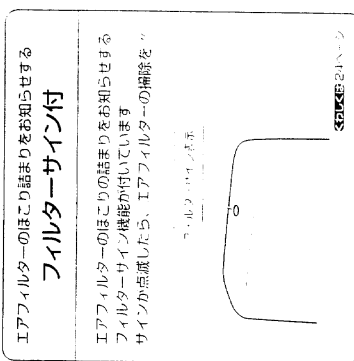 エアフィルターのほこり詰まりをお知らせする
フィルターサイン付
エアフィルターのほこりの詰まりをお知らせする
フィルターサイン機能が付いています
サインが点滅したら、エアフィルターの掃除を
フィルターサイン表示
くわしくは24ページ